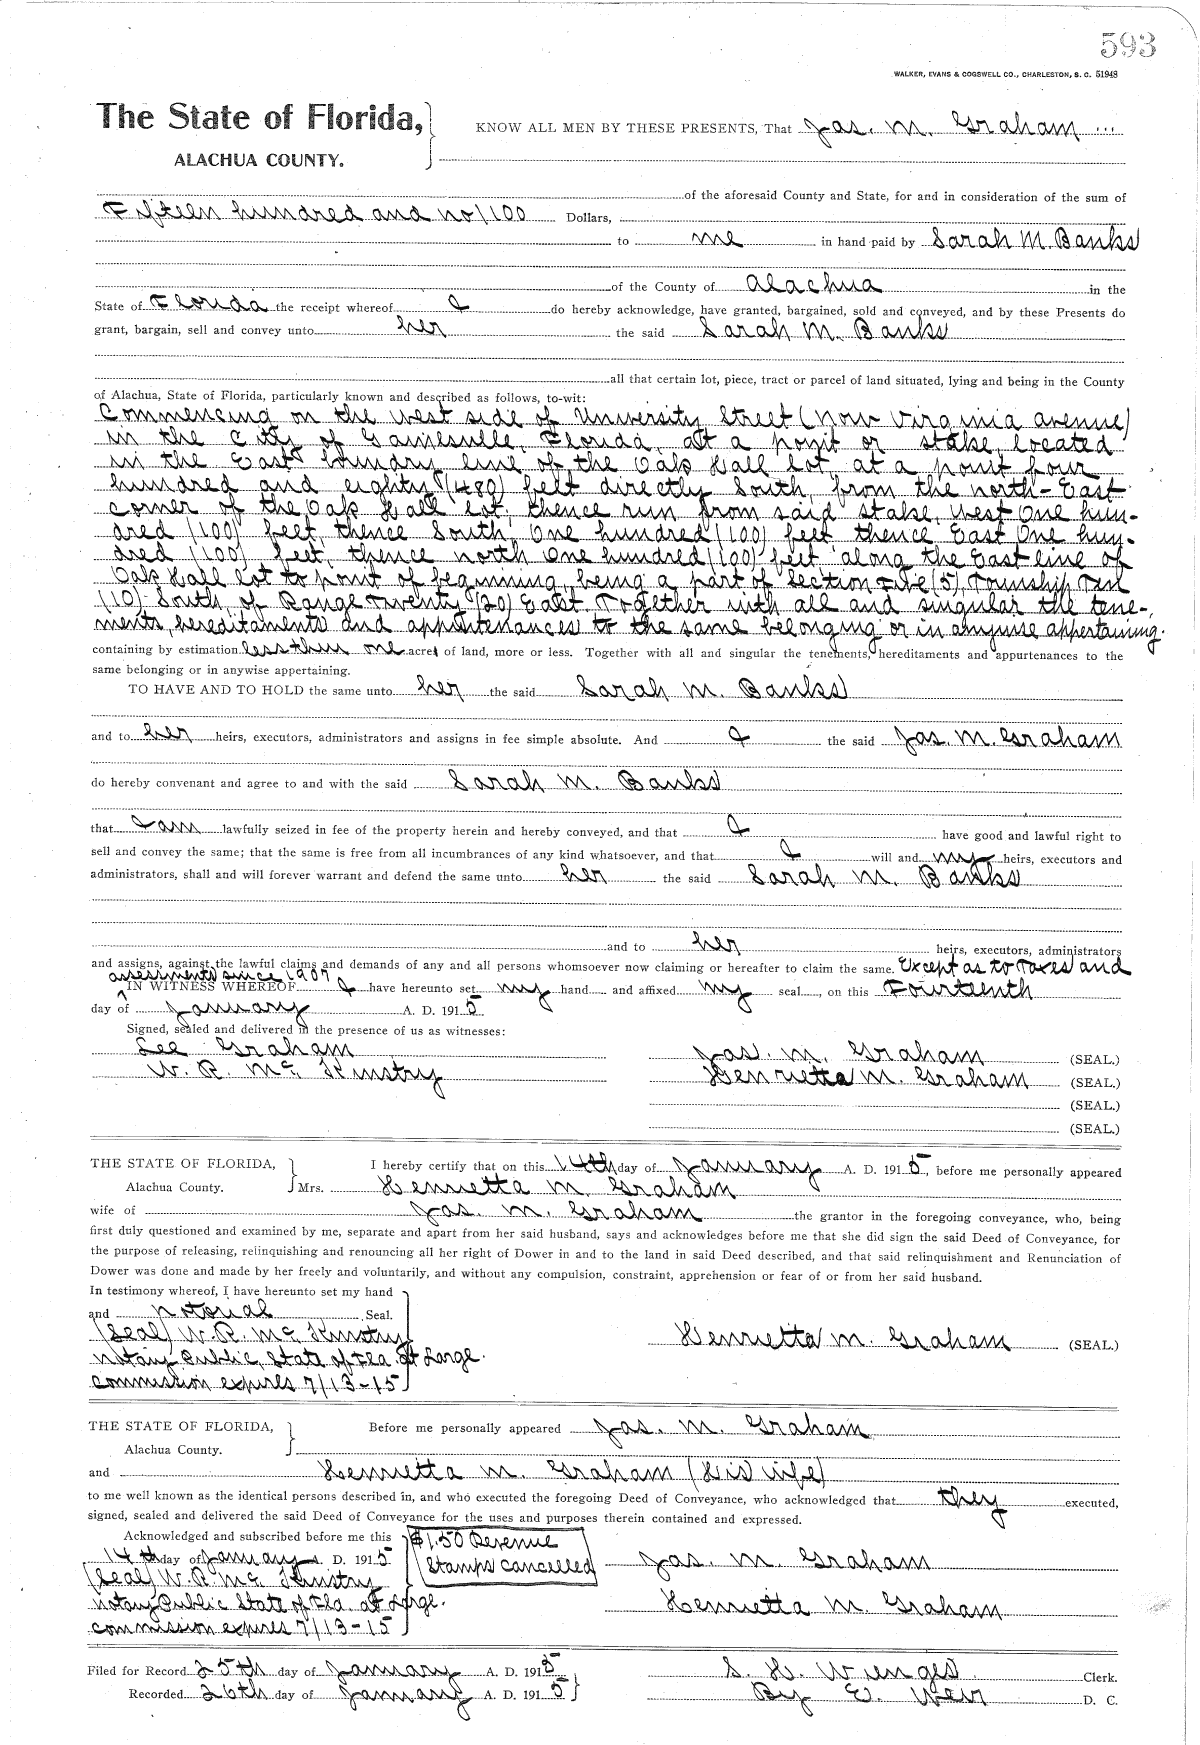 593
WALKER, EVANS & COGSWELL CO., CHARLESTON, S. C. 51948
The State of Florida,
KNOW ALL MEN BY THESE PRESENTS, That Jas. M. Graham
ALACHUA COUNTY.
of the aforesaid County and State, for and in consideration of the sum of
Fifteen hundred and no/100 Dollars,
to me in hand paid by Sarah M. Banks
of the County of Alachua in the
State of Florida the receipt whereof I do hereby acknowledge, have granted, bargained, sold and conveyed, and by these Presents do
grant, bargain, sell and convey unto her the said Sarah M. Banks
all that certain lot, piece, tract or parcel of land situated, lying and being in the County
of Alachua, State of Florida, particularly known and described as follows, to-wit:
Commencing on the west side of University Street (now Virginia avenue)
in the City of Gainesville, Florida, at a point or stake, located
in the East boundry line of the Oak Hall lot, at a point four
hundred and eighty (480) feet directly South, from the north-East
corner of the Oak Hall lot; thence run from said stake, West One hun-
dred (100) feet, thence South, One hundred (100) feet thence East One hun-
dred (100) feet, thence north One hundred (100) feet along the East line of
Oak Hall lot to point of beginning, being a part of Section Five (5), Township Ten
(10) South, of Range Twenty (20) East. Together with all and singular the tene-
ments, hereditaments and appurtenances to the same belonging or in anywise appertaining.
containing by estimation less then one acres of land, more or less. Together with all and singular the tenements, hereditaments and appurtenances to the
same belonging or in anywise appertaining.
TO HAVE AND TO HOLD the same unto her the said Sarah M. Banks
and to her heirs, executors, administrators and assigns in fee simple absolute. And I the said Jas. M. Graham
do hereby convenant and agree to and with the said Sarah M. Banks
that I am lawfully seized in fee of the property herein and hereby conveyed, and that I have good and lawful right to
sell and convey the same; that the same is free from all incumbrances of any kind whatsoever, and that I will and my heirs, executors and
administrators, shall and will forever warrant and defend the same unto her the said Sarah M. Banks
and to her heirs, executors, administrators
and assigns, against the lawful claims and demands of any and all persons whomsoever now claiming or hereafter to claim the same. Except as to Taxes and
assessments since 1907
IN WITNESS WHEREOF I have hereunto set my hand and affixed my seal, on this Fourteenth
day of January A. D. 1915
Signed, sealed and delivered in the presence of us as witnesses:
Lee Graham
Jas. M. Graham (SEAL.)
W. R. McKinstry
Henrietta M. Graham (SEAL.)
(SEAL.)
(SEAL.)
THE STATE OF FLORIDA,
I hereby certify that on this 14th day of January A. D. 1915, before me personally appeared
Alachua County.
Mrs. Henrietta M. Graham
wife of Jas. M. Graham the grantor in the foregoing conveyance, who, being
first duly questioned and examined by me, separate and apart from her said husband, says and acknowledges before me that she did sign the said Deed of Conveyance, for
the purpose of releasing, relinquishing and renouncing all her right of Dower in and to the land in said Deed described, and that said relinquishment and Renunciation of
Dower was done and made by her freely and voluntarily, and without any compulsion, constraint, apprehension or fear of or from her said husband.
In testimony whereof, I have hereunto set my hand
and notorial Seal.
(Seal) W. R. McKinstry
Henrietta M. Graham (SEAL)
Notary Public, State of Fla. at Large.
commission expires 7/13-15
THE STATE OF FLORIDA,
Before me personally appeared Jas. M. Graham
Alachua County.
and Henrietta M. Graham (His wife)
to me well known as the identical persons described in, and who executed the foregoing Deed of Conveyance, who acknowledged that they executed,
signed, sealed and delivered the said Deed of Conveyance for the uses and purposes therein contained and expressed.
Acknowledged and subscribed before me this
$1.50 Revenue
Stamps cancelled
14th day of January A. D. 1915
Jas. M. Graham
(Seal) W. R. McKinstry
Notary Public State of Fla. at Large.
Henrietta M. Graham
commission expires 7/13-15
Filed for Record 25th day of January A. D. 1915
S. H. Wienges Clerk.
Recorded 26th day of January A. D. 1915
By E. Weir D. C.